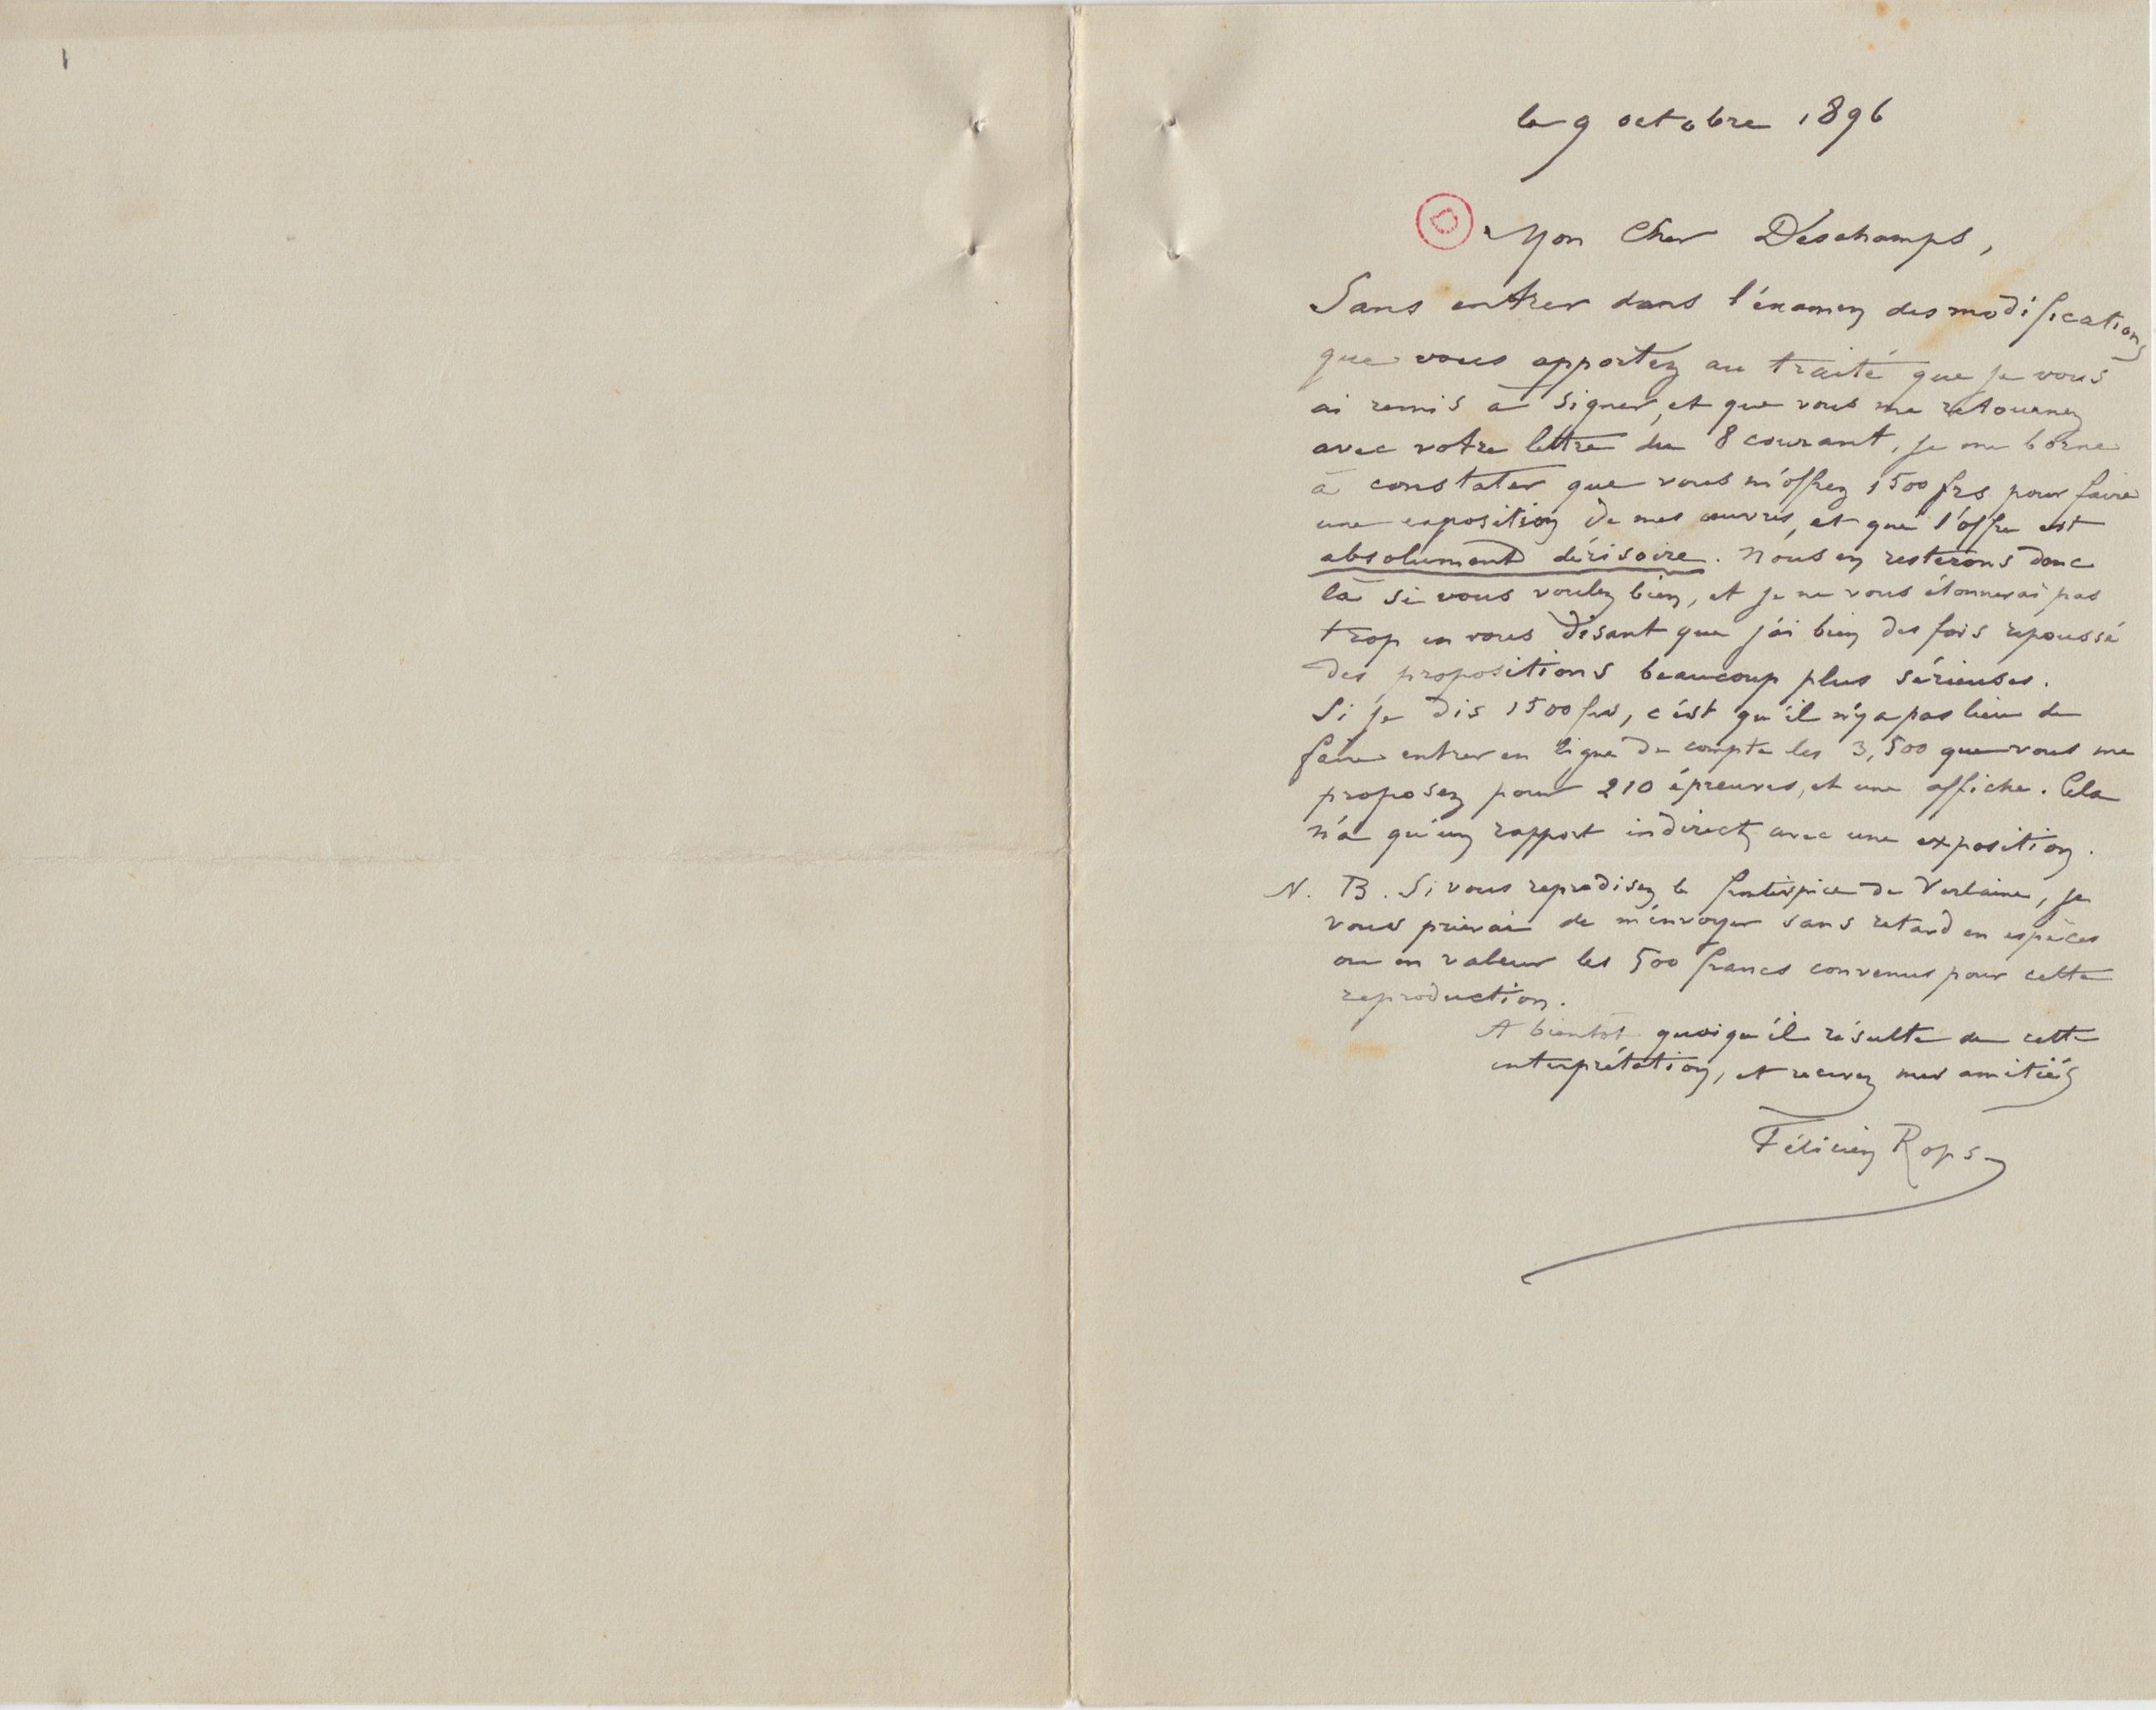 le 9 octobre 1896
Mon Cher Deschamps,
Sans entrer dans l'éxamen des modifications
que vous apportez au traité que je vous
ai remis à signer, et que vous me retournez
avec votre lettre du 8 courant, je me borne
à constater que vous m'offrez 1500 frs pour faire
une exposition de mes œuvres, et que l'offre est
absolument dérisoire. Nous en resterons donc
là si vous voulez bien, et je ne vous étonnerai pas
trop en vous disant que j'ai bien des fois repoussé
des propositions beaucoup plus sérieuses.
Si je dis 1500 frs, c'est qu'il n'y a pas lieu de
faire entrer en ligne de compte les 3,500 que vous me
proposez pour 210 épreuves, et une affiche. Cela
n'a qu'un rapport indirect avec une exposition.
N. B. Si vous reprodisez le frontispice de Verlaine, je
vous prierai de m'envoyer sans retard en espèces
ou en valeur les 500 francs convenus pour cette
reproduction.
A bientôt quoiqu'il résulte de cette
interprétation, et recevez mes amitiés
Félicien Rops